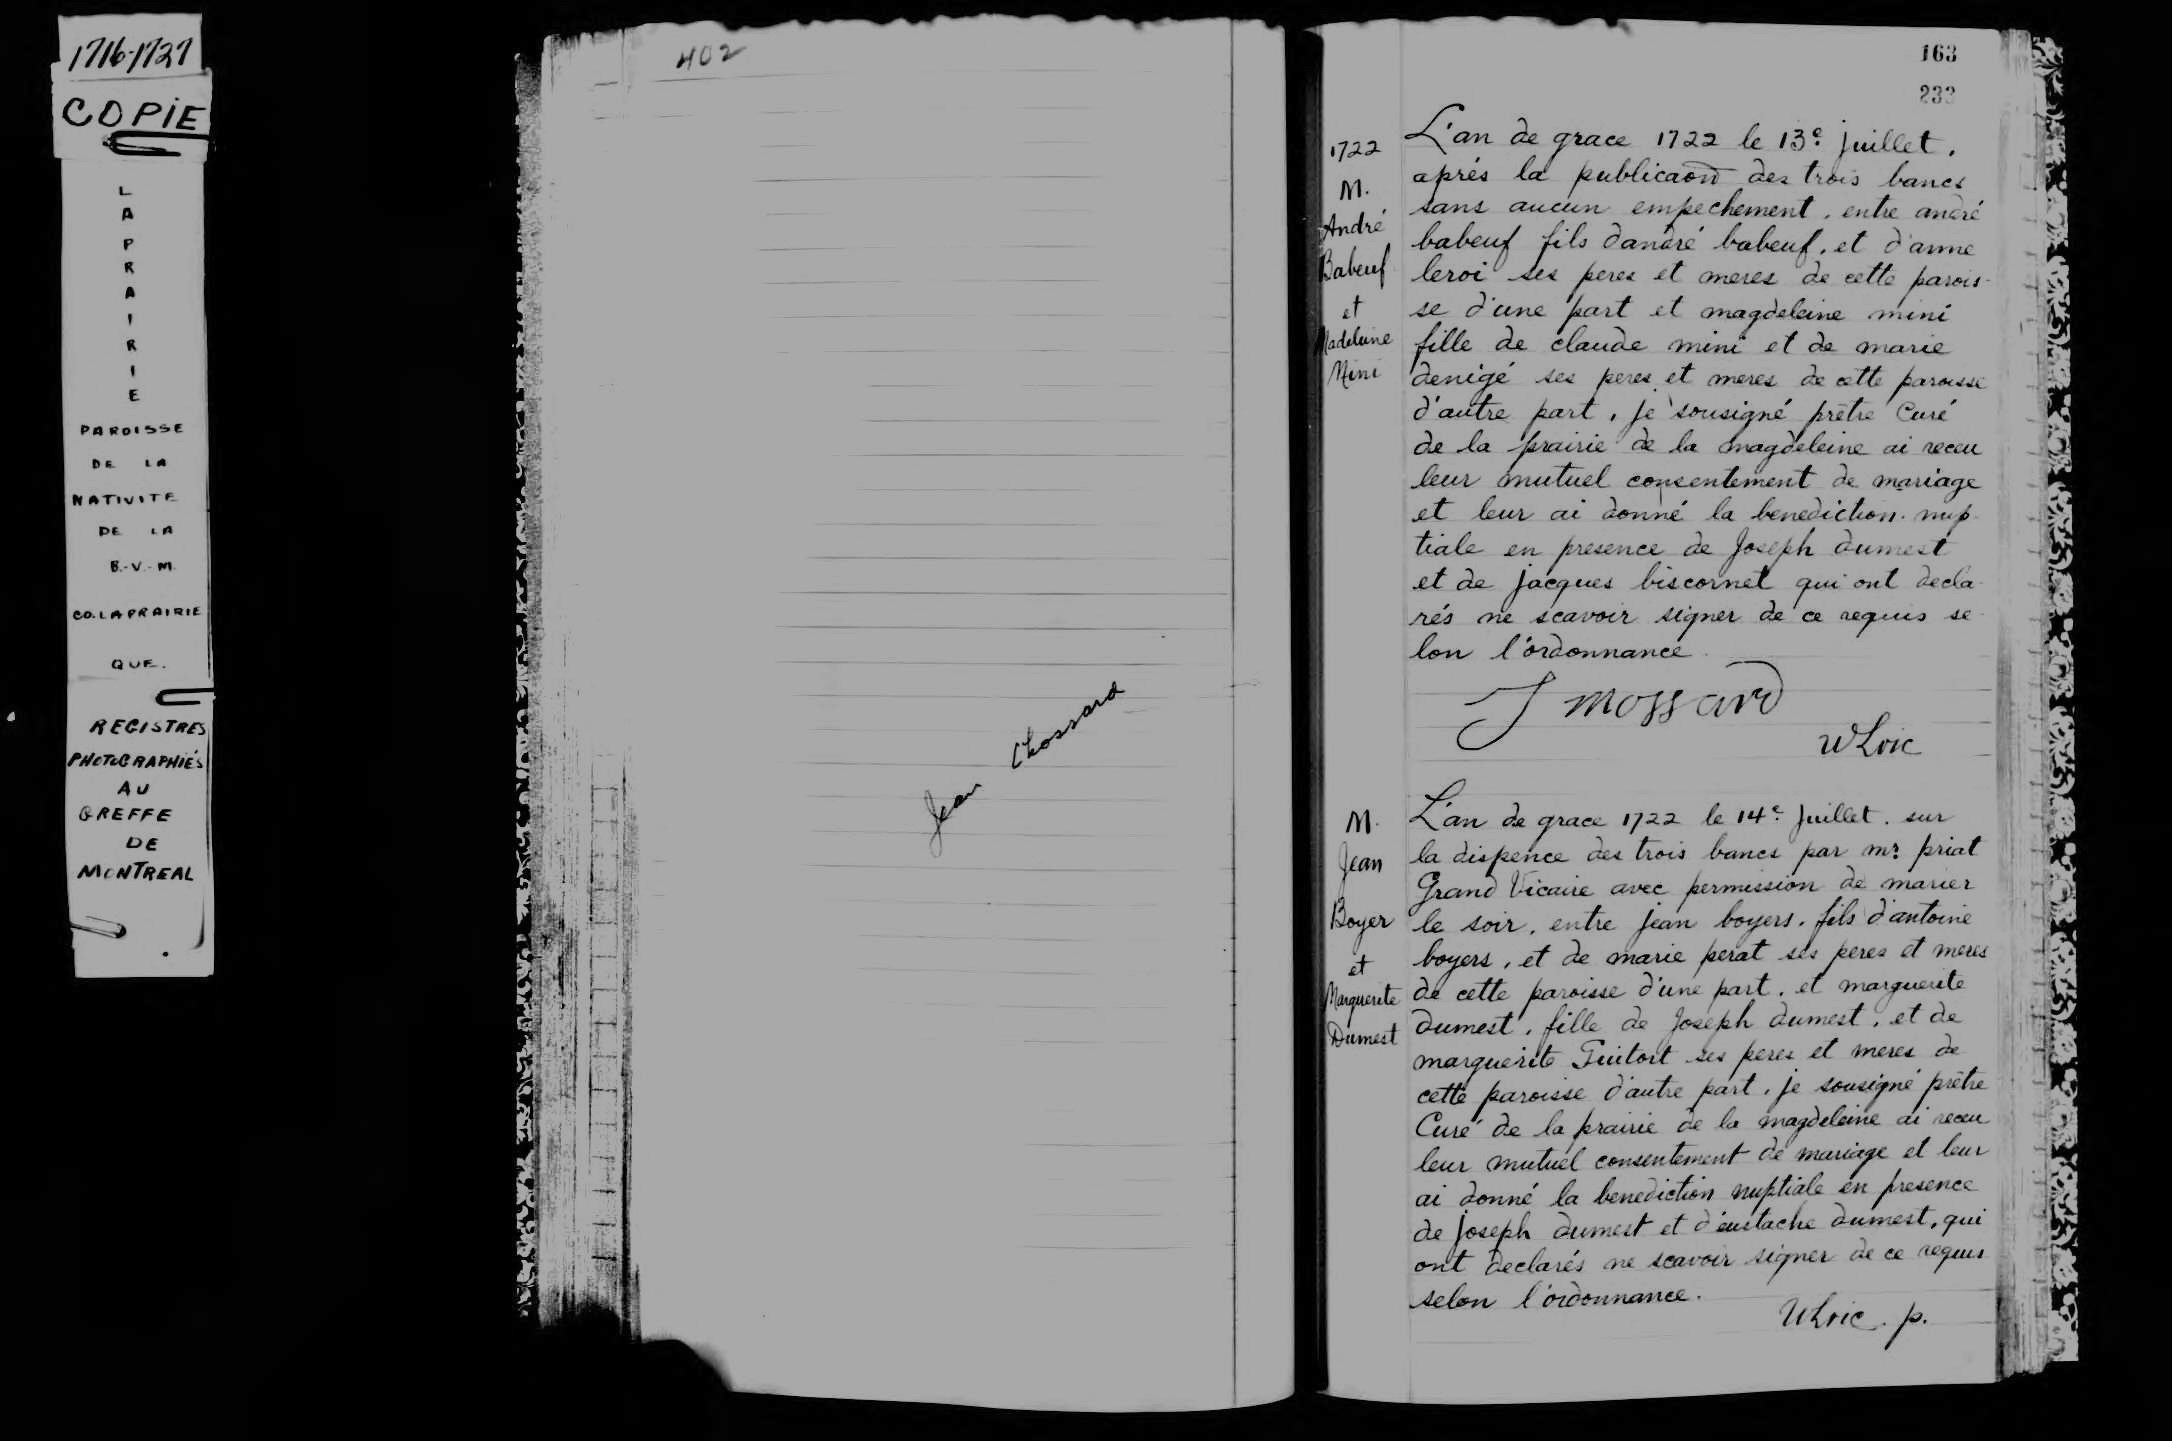 1716-1727
COPIE
LAPRAIRIE
PAROISSE
DE LA
NATIVITE
DE LA
B.-V.-M.
CO. LAPRAIRIE
QUE.
REGISTRES
PHOTOGRAPHIÉS
AU
GREFFE
DE
MONTREAL
402
Jean Chossard
163
233
1722
M.
André
Babeuf
et
Madeleine
Mini
L'an de grace 1722 le 13e juillet,
aprés la publicaon des trois bancs
sans aucun empechement, entre andré
babeuf fils d'andré babeuf, et d'anne
leroi ses peres et meres de cette parois-
se d'une part et magdeleine mini
fille de claude mini et de marie
denigé ses peres et meres de cette paroisse
d'autre part, je sousigné prêtre Curé
de la prairie de la magdeleine ai receu
leur mutuel consentement de mariage
et leur ai donné la benediction nup-
tiale en presence de Joseph dumest
et de jacques biscornet qui ont decla-
rés ne scavoir signer de ce requis se-
lon l'ordonnance
J mossard
Ulric
M.
Jean
Boyer
et
Marguerite
Dumest
L'an de grace 1722 le 14e Juillet, sur
la dispence des trois bancs par mr. priat
Grand Vicaire avec permission de marier
le soir, entre jean boyers, fils d'antoine
boyers, et de marie perat ses peres et meres
de cette paroisse d'une part, et marguerite
dumest, fille de Joseph dumest, et de
marguerite Guitort ses peres et meres de
cette paroisse d'autre part, je sousigné prêtre
Curé de la prairie de la magdeleine ai receu
leur mutuel consentement de mariage et leur
ai donné la benediction nuptiale en presence
de Joseph dumest et d'eustache dumest, qui
ont declarés ne scavoir signer de ce requis
selon l'ordonnance.
Ulric. p.